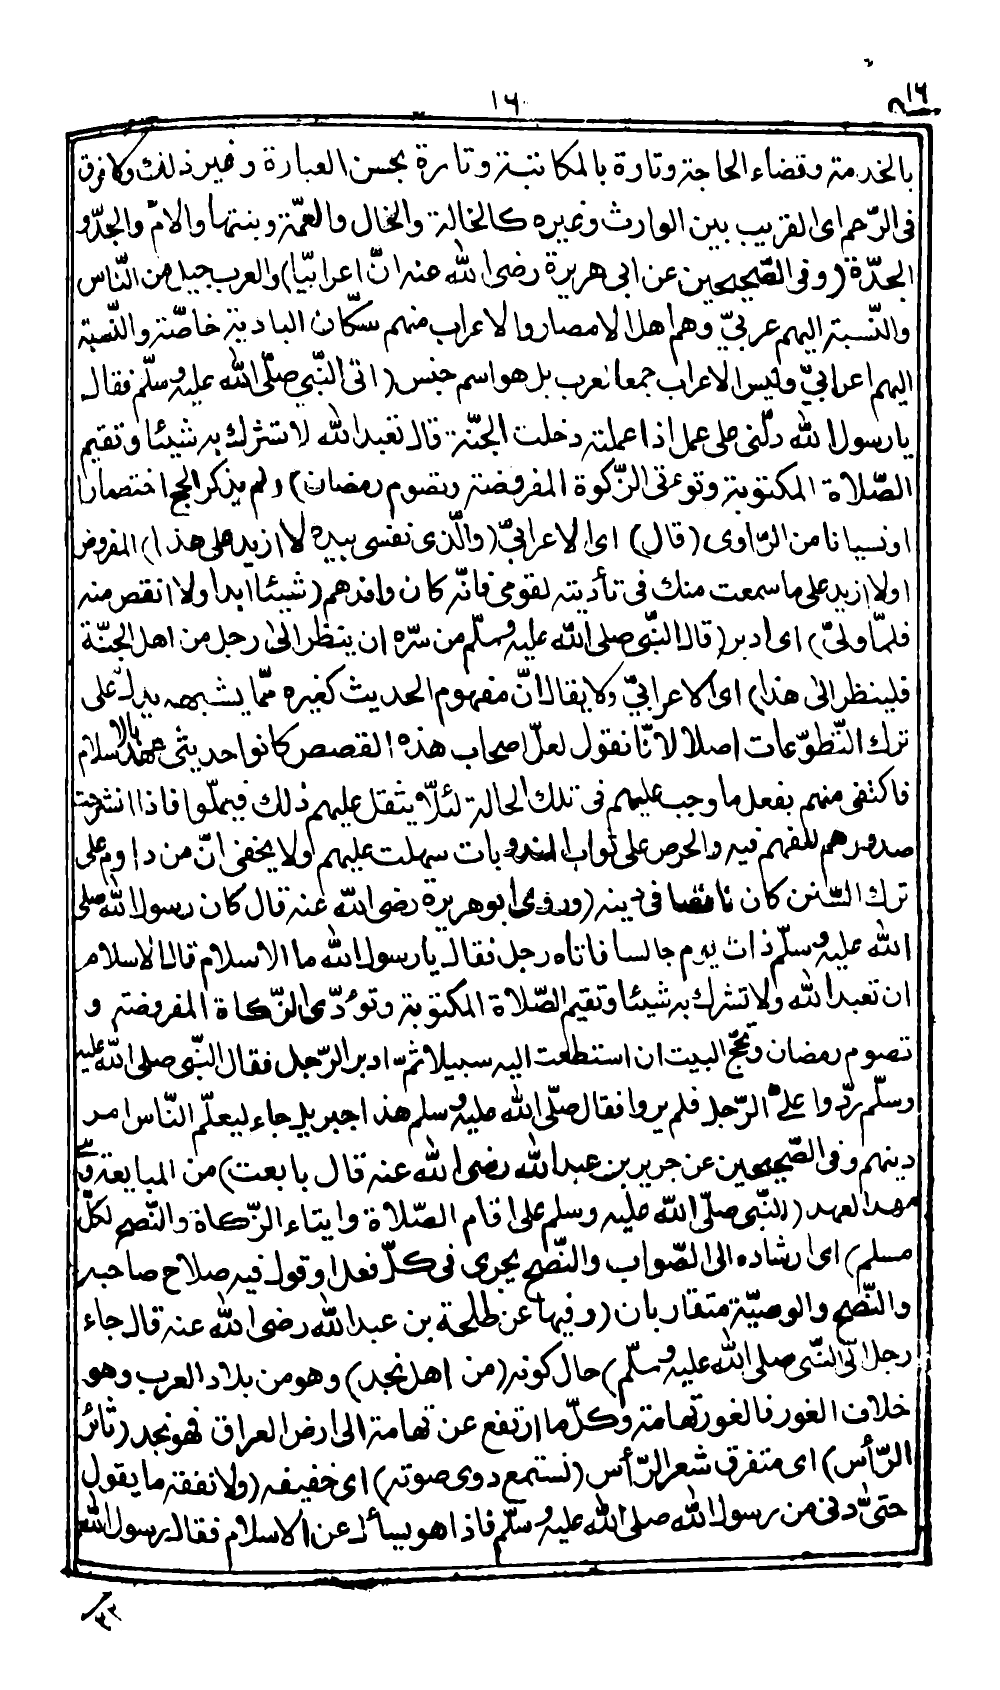 ١٦
١٦
بالخدمة وقضاء الحاجة وتارة بالمكاتبة وتارة بحسن العبارة وغير ذلك ولا فرق
فى الرّحم اى القريب بين الوارث وغيره كالخالة والخال والعمّة وبنتها والامّ والجدّ و
الجدّة (وفى الصّحيحين عن ابى هريرة رضى الله عنه انّ اعرابيّا) والعرب جيل من النّاس
والنّسبة اليهم عربىّ وهم اهل الامصار والاعراب منهم سكّان البادية خاصّة والنّسبة
اليهم اعرابىّ وليس الاعراب جمعا لعرب بل هو اسم جنس (اتى النّبىّ صلّى الله عليه وسلّم فقال
يا رسول الله دلّنى على عمل اذا عملته دخلت الجنّة قال تعبد الله لا تشرك به شيئا وتقيم
الصّلاة المكتوبة وتوءتى الزّكوة المفروضة وتصوم رمضان) ولم يذكر الحج اختصارا
او نسيانا من الرّاوى (قال) اى الاعرابىّ (والّذى نفسى بيده لا ازيد على هذا) المفروض
او لا ازيد على ما سمعت منك فى تأديته لقومى فانّه كان وافدهم (شيئا ابدا ولا انقص منه
فلمّا ولىّ) اى ادبر (قال النّبى صلى الله عليه وسلّم من سرّه ان ينظر الى رجل من اهل الجنّة
فلينظر الى هذا) اى الاعرابىّ ولا يقال انّ مفهوم الحديث كغيره ممّا يشبهه يدلّ على
ترك التّطوّعات اصلا لانّا نقول لعلّ اصحاب هذه القصص كانوا حديثى عهد بالاسلام
فاكتفى منهم بفعل ما وجب عليهم فى تلك الحالة لئلّا يثقل عليهم ذلك فيملّوا فاذا انشرحت
صدورهم للفهم فيه والحرص على ثواب المندوبات سهلت عليهم ولا يخفى انّ من داوم على
ترك السّنن كان ناقصا فى دينه (وروى ابو هريرة رضى الله عنه قال كان رسول الله صلى
الله عليه وسلّم ذات يوم جالسا فاتاه رجل فقال يا رسول الله ما الاسلام قال الاسلام
ان تعبد الله ولا تشرك به شيئا وتقيم الصّلاة المكتوبة وتؤدّى الزّكاة المفروضة و
تصوم رمضان وتحجّ البيت ان استطعت اليه سبيلا ثمّ ادبر الرّجل فقال النّبى صلى الله عليه
وسلّم ردّوا علىّ الرّجل فلم يروا فقال صلّى الله عليه وسلم هذا جبريل جاء ليعلّم النّاس امر
دينهم وفى الصّحيحين عن جرير بن عبد الله رضى الله عنه قال بايعت) من المبايعة وهى
عهد العهد (النّبى صلّى الله عليه وسلم على اقام الصّلاة وايتاء الزّكاة والنّصح لكلّ
مسلم) اى ارشاده الى الصّواب والنّصح يجرى فى كلّ فعل او قول فيه صلاح صاحبه
والنّصح والوصيّة متقاربان (وفيها عن طلحة بن عبد الله رضى الله عنه قال جاء
رجل الى النّبى صلى الله عليه وسلّم) حال كونه (من اهل نجد) وهو من بلاد العرب وهو
خلاف الغور فالغور تهامة وكلّ ما ارتفع عن تهامة الى ارض العراق فهو نجد (ثائر
الرّأس) اى متفرق شعر الرّأس (نستمع دوى صوته) اى خفيفه (ولا نفقة ما يقول
حتىّ دنى من رسول الله صلى الله عليه وسلّم فاذا هو يسأل عن الاسلام فقال رسول الله